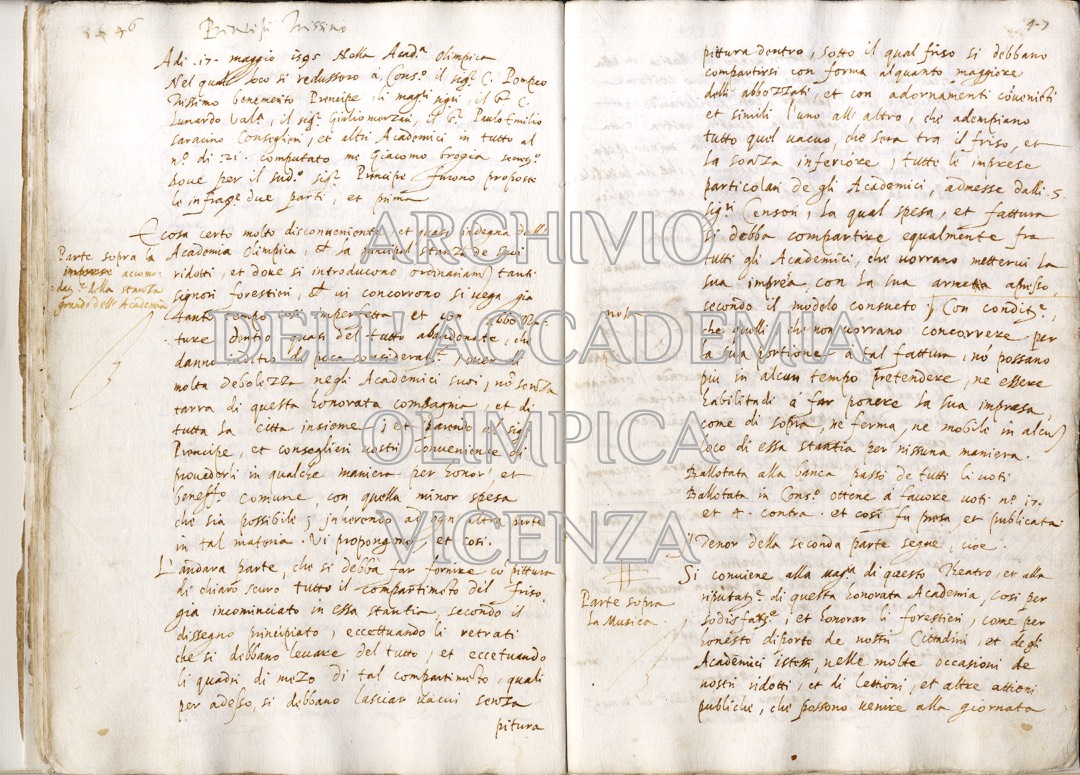 46
Adi .17. maggio 1595 Nella Acad.ª Olimpica
Nel qual loco si redussono a Cons.º il sig.r C. Pompeo
Trissimo benemerito Principe, li mag.ci sig.ri, il s.r C.
Lunardo Val.ª, il sig.r Giulio , il s.r Paulo Emilio
Saracino Consiglieri, et altri Academici in tutto al
n.º di .21. computato me Giacomo
Dove per il sud.º sig.r Principe furono proposte
le infra due parti, et prima
E cosa certo molto disconveniente, et quasi indegna dell'
Academia Olimpica, la principal stanza de suoi
ridotti, et dove si introducono ordinariam.te tanti
signori forestieri, vi concorrono si vega già
tanto tempo così imperfetta et con abbozza-
ture dentro quasi del tutto abandonate, che
danno inditio di poca
molta debolezza negli Academici suoi, nō senza
tarra di questa honorata compagnia, et di
tutta la città insieme; et parendo al sig.r
Principe, et conseglieri nostri conveniente di
provederli in qualche maniera per honor, et
beneff.º comune, con quella minor spesa
che sia possibile; inherendo ad ogn'altra parte
in tal materia. Vi propongono et così.
L'andara parte, che si debba far fornire cō pittura
di chiaro scuro tutto il compartimēto del friso,
già incominciato in essa stantia, secondo il
dissegno principiato, eccettuando li retrati
che si debbano levare del tutto, et eccetuando
li quadri di mezo di tal compartimēto, quali
per adesso, si debbano lasciar vacui senza
pitura
Parte sopra la
imprese acomo-
dat.e della stanza
grande dell'Academia
47
pittura dentro, sotto il qual friso si debbano
compartirsi con forma alquanto maggiore
delli abbozzati, et con adornamenti cōvenienti
et simili l'uno all'altro, che adempiano
tutto quel vacuo, che sera tra il friso, et
la soaza inferiore, tutte le imprese
particolari de gli Academici, admesse dalli .5.
sig.ri Censori, la qual spesa, et fattura
si debba compartire equalmente fra
tutti gli Academici, che vorrano mettervi la
sua impresa con la sua armetta apresso,
secondo il modelo consueto; Con condit.e,
che quelli che non vorrano concorrere per
la sua portione a tal fattura, nō possano
più in alcun tempo pretendere, ne essere
habilitadi a far ponere la sua impresa,
come di sopra, ne ferma, ne mobile in alcun
loco di essa stantia per nissuna maniera.
Ballotata alla banca passò de tutti li voti
Ballotata in Cons.º ottene a favore voti n.º 17.
et 4. contra. et così fu presa et publicata
Il Tenor della seconda parte segue, cioè.
Parte sopra
la Musica.
Si conviene alla mag.tà di questo Theatro, et alla
riputat.e di questa honorata Academia, così per
sodisfatt.e, et honorar li forestieri, come per
honesto diporto de nostri Cittadini, et degli
Academici istessi, nelle molte occasioni de
nostri ridotti, et di lettioni, et altre attioni
publiche, che possono venire alla giornata
ARCHIVIO
DELL'ACCADEMIA
OLIMPICA
VICENZA